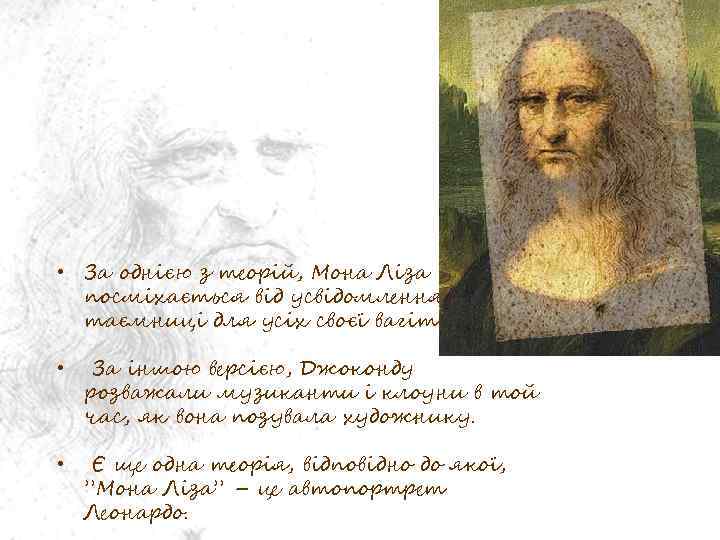 • За однією з теорій, Мона Ліза
посміхається від усвідомлення
таємниці для усіх своєї
• За іншою версією, Джоконду
розважали музиканти і клоуни в той
час, як вона позувала художнику.
• Є ще одна теорія, відповідно до якої,
”Мона Ліза” – це автопортрет
Леонардо.